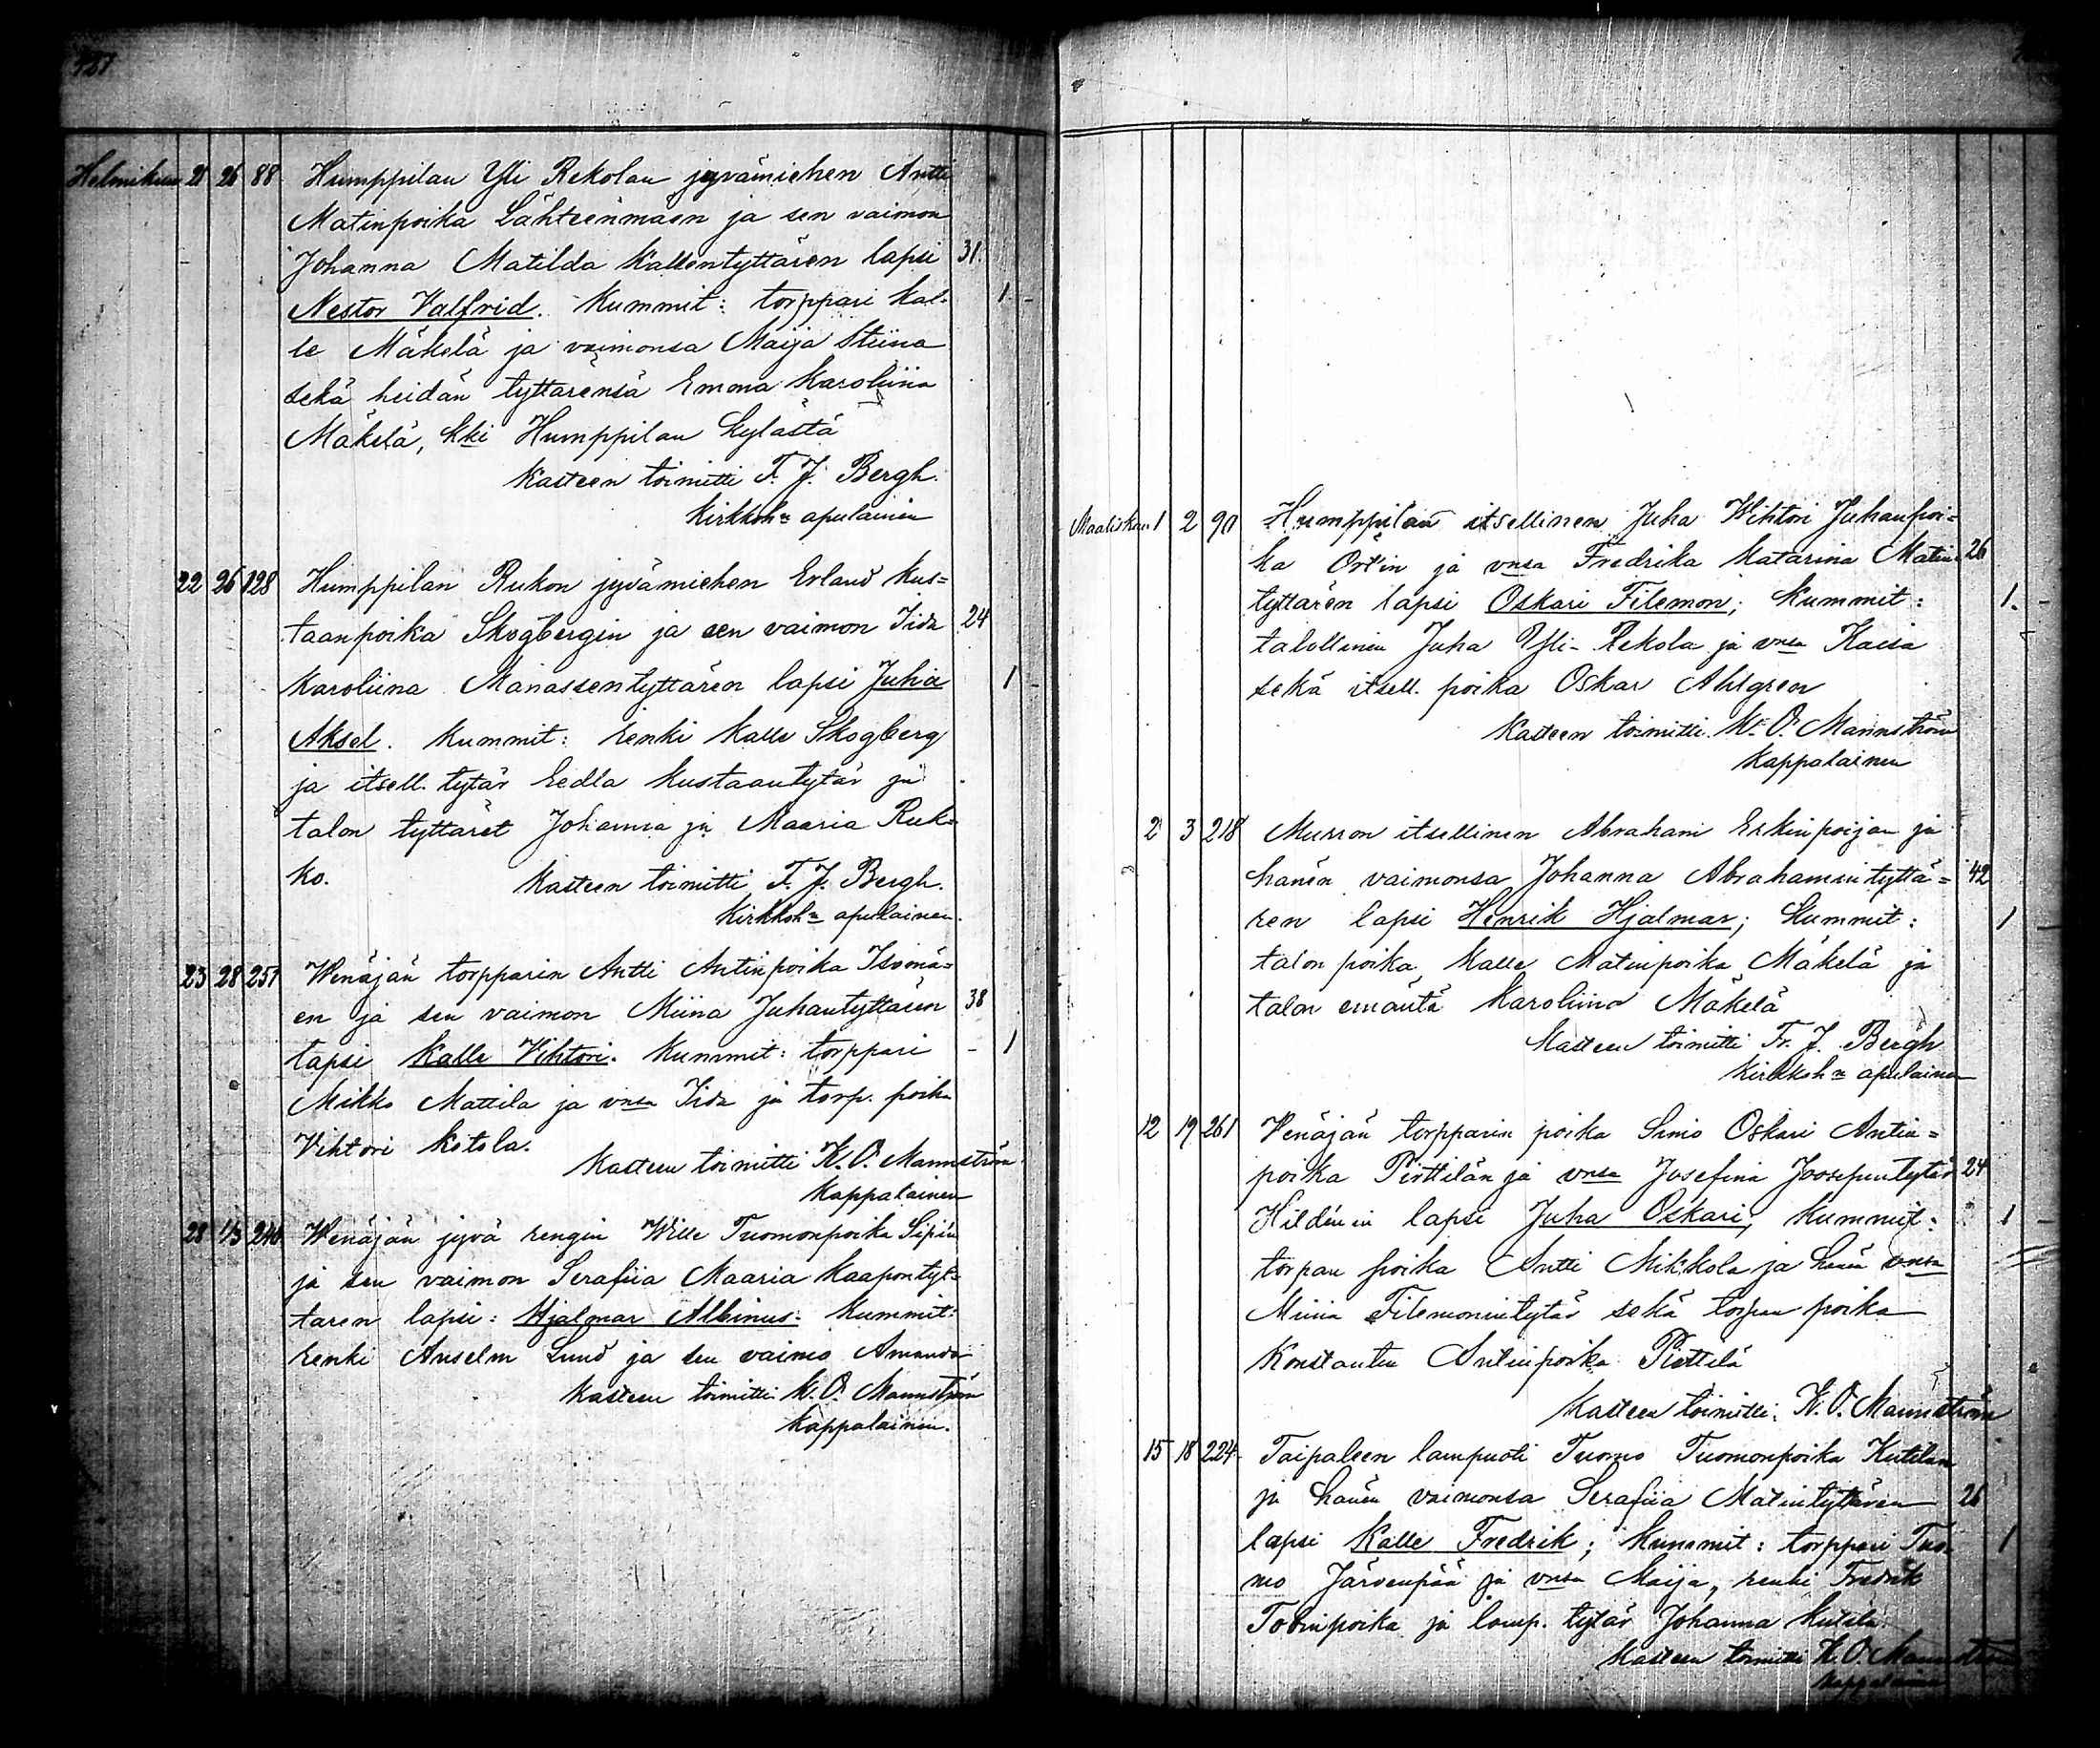 Helmikuu 21 26 88 Humppilan Yli Rekolan jyvämiehen Antti
Matinpoika Lähteenmäen ja sen vaimon
Johanna Matilda Kallentyttären lapsi 31.
Nestor Valfrid. Kummit: torppari Kal- 1
le Mäkelä ja vaimonsa Maija Stiina
sekä heidän tyttärensä Emma Karoliina
Mäkelä, kki Humppilan kylästä
Kasteen toimitti F. J. Bergh.
Kirkkoh:n apulainen
22 26 128 Humppilan Rukon jyvämiehen Erland Kus=
taanpoika Skogbergin ja sen vaimon Iida 24
Karoliina Manassentyttären lapsi Juha 1
Aksel. Kummit: renki Kalle Skogberg
ja itsell. tytär Eedla Kustaantytär ja
talon tyttäret Johanna ja Maaria Ruk=
ko. Kasteen toimitti F. J. Bergh.
Kirkkoh:n apulainen.
23 28 251 Wenäjän torpparin Antti Antinpoika Isomä=
en ja sen vaimon Miina Juhantyttären 38
lapsi Kalle Vihtori. Kummit: torppari - 1
Mikko Mattila ja vnsa Iida ja torp. poika
Vihtori Kotola.
Kasteen toimitti K. O. Mannström
Kappalainen
28 1/3 240 Wenäjän jyvä rengin Wille Tuomonpoika Sipin
ja sen vaimon Serafiia Maaria Kaapontyt=
tären lapsi: Hjalmar Albinus: Kummit:
renki Anselm Lund ja sen vaimo Amanda
Kasteen toimitti K. O. Mannström
Kappalainen.
Maaliskuu 1 2 90 Humppilan itsellinen Juha Wihtori Juhanpoi=
ka Ort'in ja vnsa Fredrika Katarina Matin 26
tyttären lapsi Oskari Filemon; Kummit: 1.
talollinen Juha Yli-Rekola ja vnsa Kaisa
sekä itsell. poika Oskar Ahlgren
Kasteen toimitti K. O. Mannström
Kappalainen
2 3 218 Murron itsellinen Abraham Erkinpoijan ja
hänen vaimonsa Johanna Abrahamintyttä= 42
ren lapsi Henrik Hjalmar; Kummit: 1
talon poika Kalle Matinpoika Mäkelä ja
talon emäntä Karoliina Mäkelä
Kasteen toimitti Fr. J. Bergh
Kirkkoh:n apulainen
12 19 261 Venäjän torpparin poika Simo Oskari Antin=
poika Pirttilän ja vnsa Josefina Joosepintytär 24
Hildénin lapsi Juha Oskari, Kummit: 1
torpan poika Antti Mikkola ja hänen vnsa
Miina Filemonintytär sekä torpan poika
Konstantin Antinpoika Pirttilä
Kasteen toimitti, K. O. Mannström
15 18 224 Taipaleen lampuoti Tuomo Tuomonpoika Kutilan
ja hänen vaimonsa Serafiia Matintyttären 26
lapsi Kalle Fredrik; Kummit: torppari Tuo- 1
mo Järvenpää ja vnsa Maija, renki Fredrik
Tobinpoika ja lamp. tytär Johanna Kutila.
Kasteen toimitti K. O. Mannström
Kappalainen